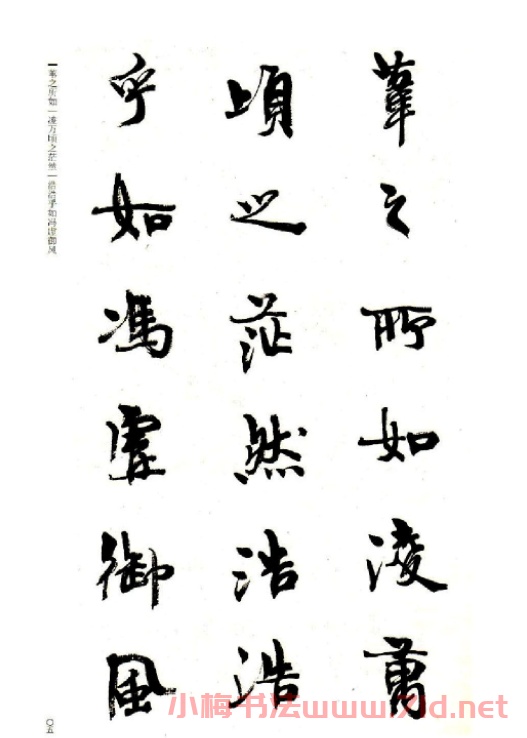 葦之所如淩萬
頃之茫然浩浩
乎如馮虛御風
苇之所如｜凌万顷之茫然｜浩浩乎如冯虚御风
〇五
小梅书法www.7ld.net